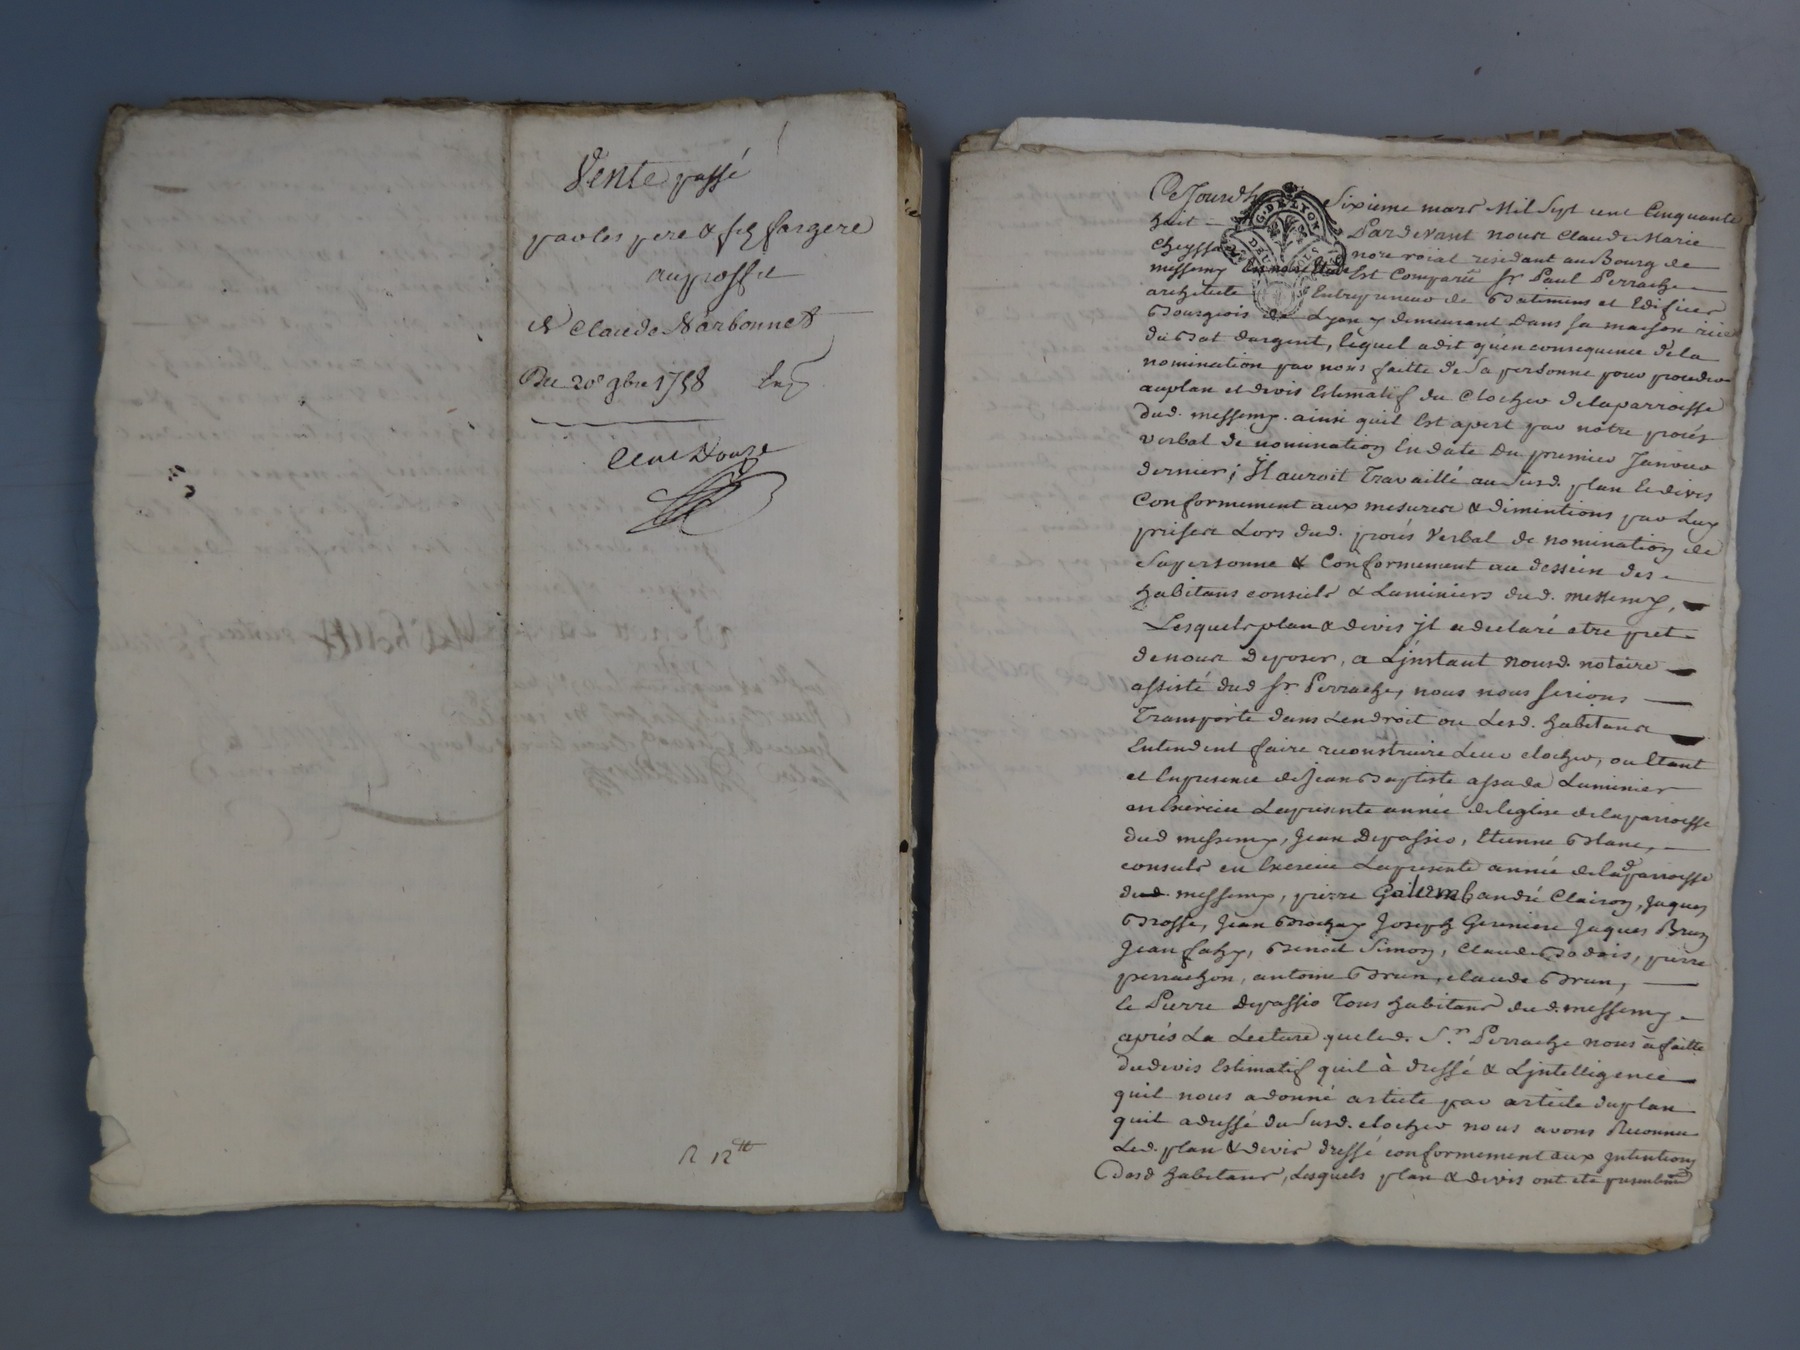 Vente passé
par les pere & fils fargere
au proffit
de Claude Narbonnet
Du 20e 9bre 1758
R 12tt
Ce Jourdhuy Sixieme mars Mil Sept cent Cinquante
huit Pardevant nous Claude Marie
Cheyssac nore roial residant au Bourg de
messemy En notre Etude Est Comparu sr Paul Perrache
architecte Entrepreneur de Batimens et Edifices
Bourgeois de Lyon y demeurant dans sa maison rüe
du Bat dargent, lequel a dit quen consequence de la
nomination par nous faitte de sa personne pour proceder
au plan et devis Estimatif du Clocher de la parroisse
dud. messemy. ainsi quil Est apert par notre procés
verbal de nomination En date du premier Janvier
dernier; Il auroit Travaillé au susd. plan & devis
Conformement aux mesures & dimintions par Luy
prises Lors dud. procés Verbal de nomination de
sa personne & Conformement au dessein des
habitans consuls & Luminiers dud. messemy,
Lesquels plan & devis jl a declaré etre pret
de nous deposer, a Ljnstant nousd. notaire
assisté dud sr Perrache, nous nous serions
Transporté dans Lendroit ou Lesd. habitans
Entendent faire reconstruire Leur clocher, ou Etant
et En presence de Jean Baptiste assada Luminier
en Exercice La presente année de leglise de la parroisse
dud messemy, Jean Depassio, Etienne Blanc,
consuls en Exercice La presente année de lad parroisse
dud. messemy, pierre Guillermh andré Clairon, Jaques
Brosse, Jean Brochay Joseph Geriniere Jaques Brun
Jean fahy, Benoit Simon, Claude Bodois, pierre
perrachon, antoine Brun, claude Brun,
& Pierre Depassio Tous habitans dud. messemy
aprés La Lecture que led. Sr. Perrache nous a faitte
du devis Estimatif quil à dressé & Ljntelligence
quil nous a donné article par article du plan
quil a dressé du susd. clocher nous avons Reconnu
Led. plan & devis dressé conformement aux jntentions
desd habitans, Lesquels plan & devis ont eté